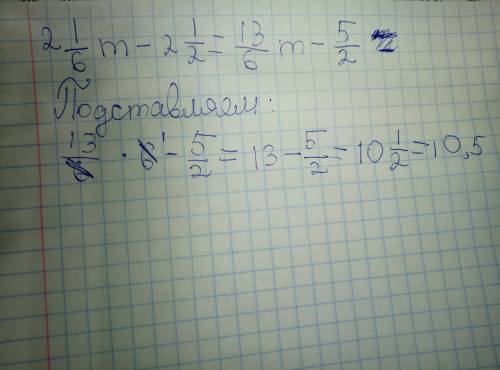 2 1/6 m - 2 1/2 = 13/6 m - 5/2
Подставляем:
13/6 · 6 1 - 5/2 = 13 - 5/2 = 10 1/2 = 10,5